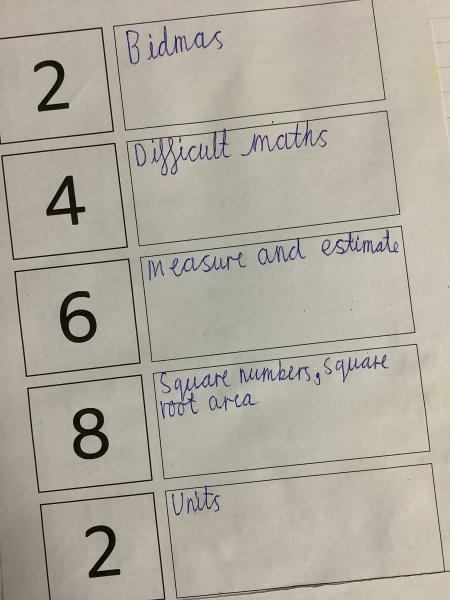 2
Bidmas
4
Difficult maths
6
measure and estimate
8
Square numbers, square
root area
2
Units